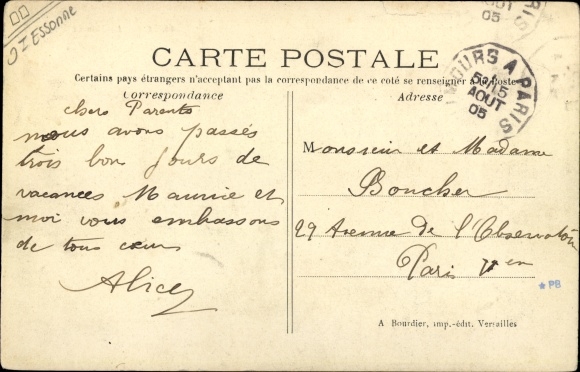 91 ESSONNE
CARTE POSTALE
Certains pays étrangers n'acceptant pas la correspondance de ce coté se renseigner à la Poste
Correspondance
chers Parents
nous avons passés
trois bon jours de
vacances Maurice et
moi vous embassons
de tous cœur
Alice
Adresse
Monsieur et Madame
Boucher
29 Avenue de l'Observatoire
Paris
A PARIS
15
AOUT
05
PARIS
AOUT
05
★ PB
A Bourdier, imp.-édit. Versailles